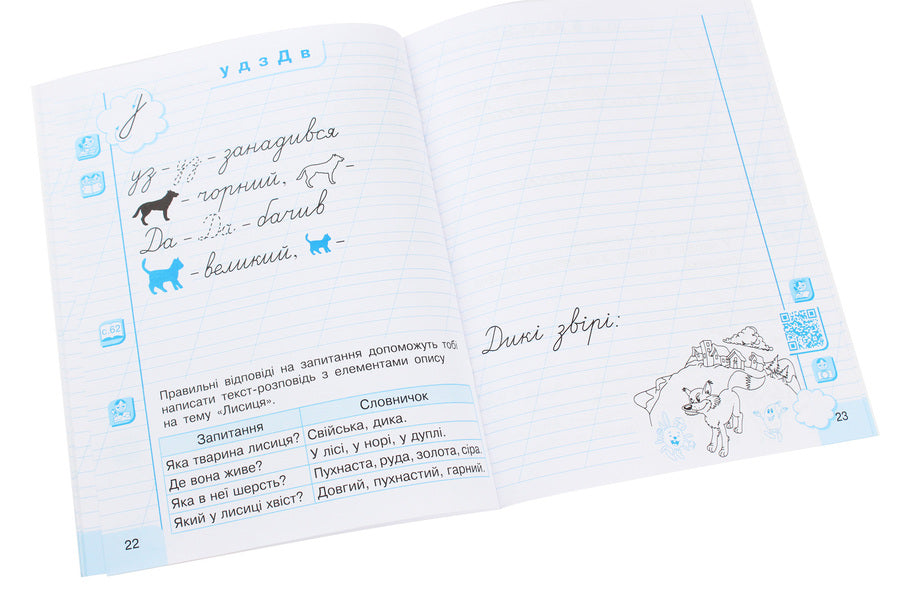 у д з Д в
У
уз - уз - занадився
- чорний, -
Да - Да - бачив
- великий, -
с.62
Правильні відповіді на запитання допоможуть тобі
написати текст-розповідь з елементами опису
на тему «Лисиця».
Запитання Словничок
Яка тварина лисиця? Свійська, дика.
Де вона живе? У лісі, у норі, у дуплі.
Яка в неї шерсть? Пухнаста, руда, золота, сіра.
Який у лисиці хвіст? Довгий, пухнастий, гарний.
22
Дикі звірі:
23